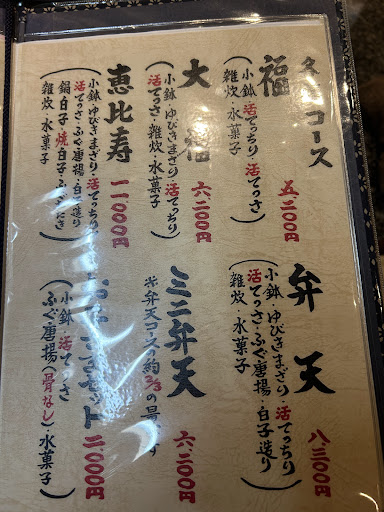 コース
福
(小鉢・活てっちり・活てっさ
雑炊・水菓子)
五、二〇〇円
大福
(小鉢・ゆびきまざり・活てっちり
活てっさ・雑炊・水菓子)
六、二〇〇円
恵比寿
(小鉢・ゆびきまざり・活てっちり
活てっさ・ふぐ唐揚・白子造り
鍋白子・焼白子・ふぐにぎり
雑炊・水菓子)
一一、〇〇〇円
弁天
(小鉢・ゆびきまざり・活てっちり
活てっさ・ふぐ唐揚・白子造り
雑炊・水菓子)
八、三〇〇円
ミニ弁天
※弁天コースの約2/3の量です
六、二〇〇円
セット
(小鉢・活てっさ
ふぐ唐揚(骨なし)・水菓子)
二、〇〇〇円